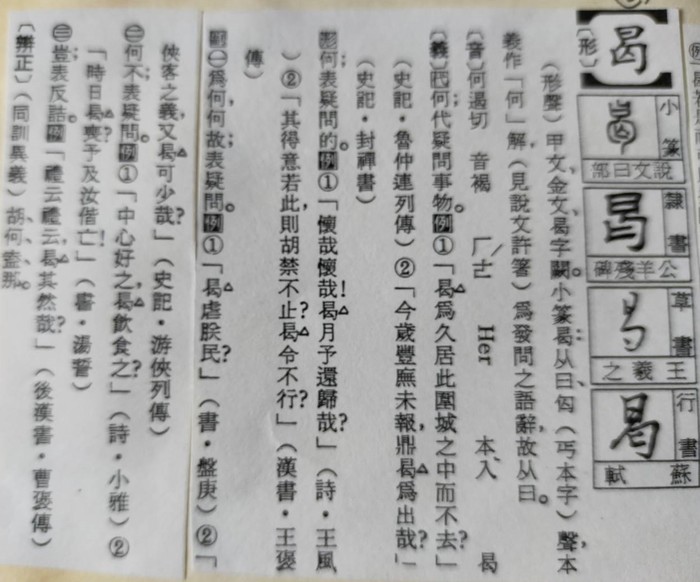 曷
小篆
說文曰部
隸書
公羊殘碑
草書
王羲之
行書
蘇軾
〔形〕
(形聲)甲文、金文、曷字闕。小篆曷从曰、匃(丐本字)聲,本
義作「何」解,(見說文許箸)爲發問之語辭,故从曰。
〔音〕何遏切 音褐 ㄏㄜˊ Her 本入 曷
〔義〕代何;代疑問事物。例①「曷爲久居此圍城之中而不去?」
(史記・魯仲連列傳)②「今歲豐廡未報,鼎曷爲出哉?」
(史記・封禪書)
形何;表疑問的。例①「懷哉懷哉!曷月予還歸哉?」(詩・王風
)②「其得意若此,則胡禁不止?曷令不行?」(漢書・王褒
傳)
副㊀爲何,何故;表疑問。例①「曷虐朕民?」(書・盤庚)②「
俠客之義,又曷可少哉?」(史記・游俠列傳)
㊁何不;表疑問。例①「中心好之,曷飲食之?」(詩・小雅)②
「時日曷喪?予及汝偕亡!」(書・湯誓)
㊂豈;表反詰。例「禮云禮云,曷其然哉?」(後漢書・曹褒傳)
〔辨正〕(同訓異義)胡、何、盍、那。